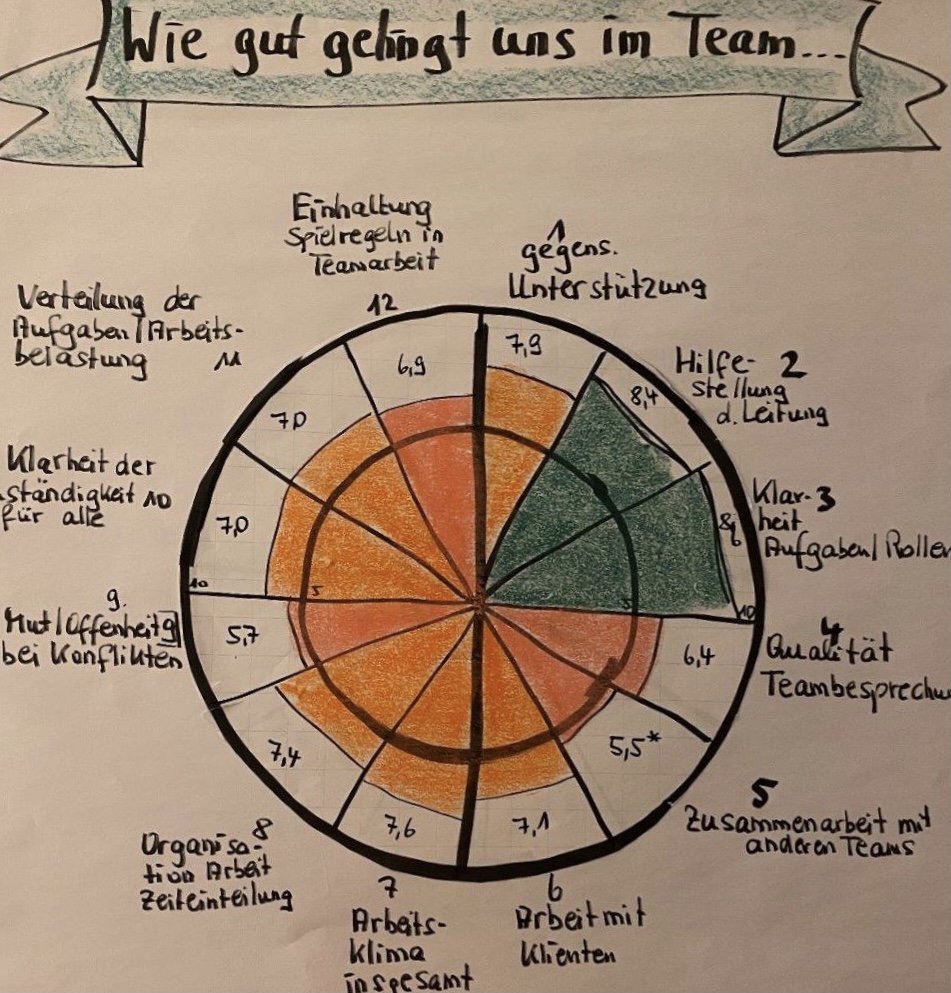 Wie gut gelingt uns im Team...
Einhaltung
Spielregeln in
Teamarbeit
12
1
gegens.
Unterstützung
Hilfe- 2
stellung
d. Leitung
Klar- 3
heit
Aufgaben/Rollen
4
Qualität
Teambesprechu
5
Zusammenarbeit mit
anderen Teams
6
Arbeit mit
Klienten
7
Arbeits-
klima
insgesamt
8
Organisa-
tion Arbeit
Zeiteinteilung
9.
Mut/Offenheit 9
bei Konflikten
Klarheit der
ständigkeit 10
für alle
Verteilung der
Aufgaben/Arbeits-
belastung 11
7,9
8,4
6,4
5,5*
7,1
7,6
7,4
5,7
7,0
7,0
6,9
10
5
5
10